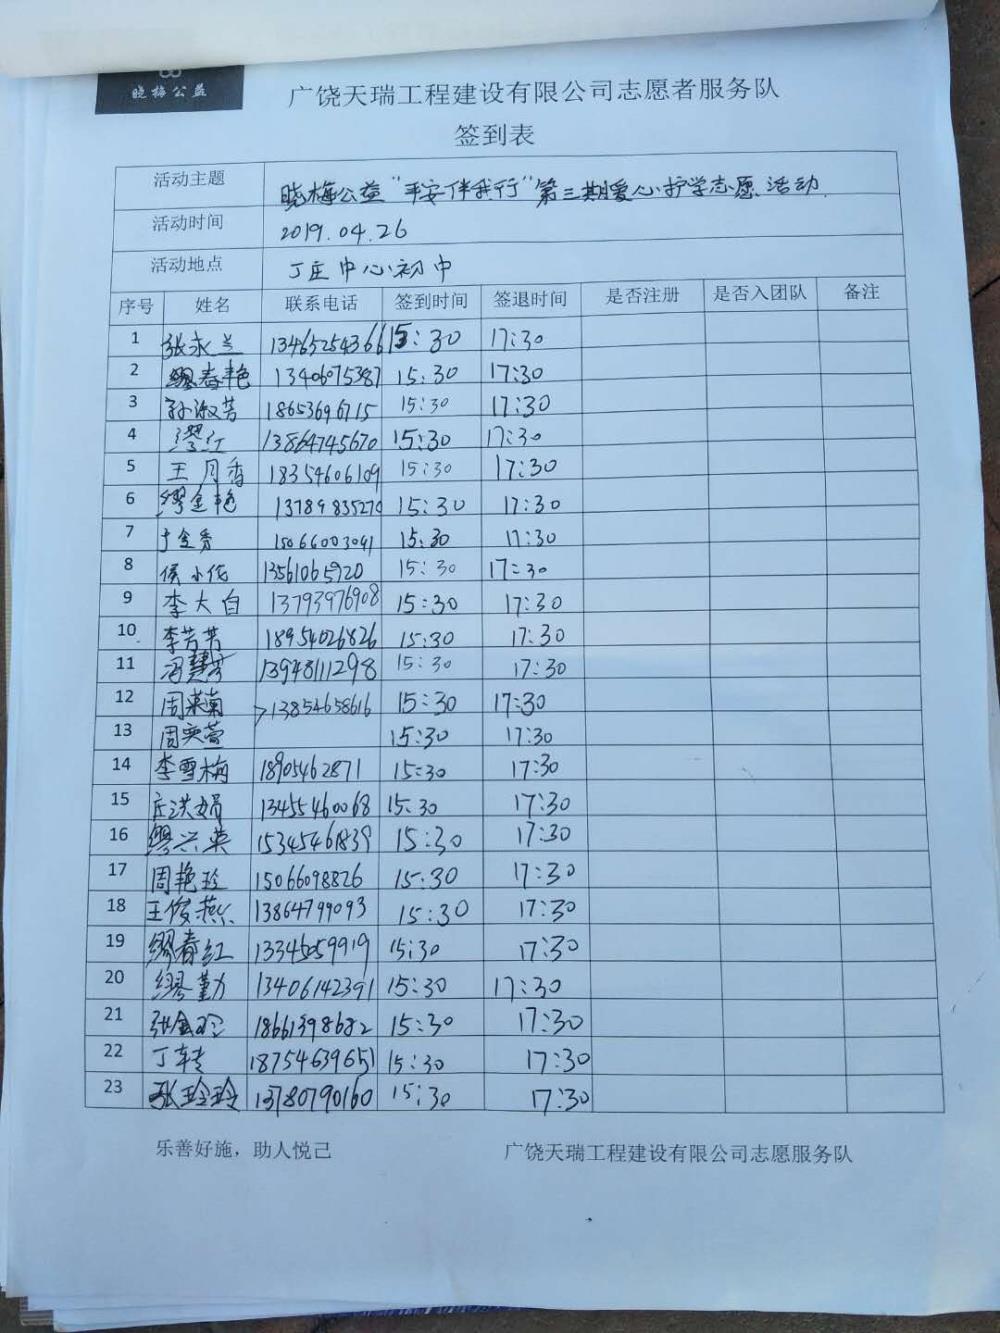 晓梅公益
广饶天瑞工程建设有限公司志愿者服务队
签到表
活动主题 晓梅公益“平安伴我行”第三期爱心护学志愿活动.
活动时间 2019.04.26
活动地点 丁庄中心初中
序号 姓名 联系电话 签到时间 签退时间 是否注册 是否入团队 备注
1 张永兰 13465254366 15:30 17:30
2 缪春艳 13406075387 15:30 17:30
3 孙淑芳 18653696715 15:30 17:30
4 缪红 13864745670 15:30 17:30
5 王月香 18354606109 15:30 17:30
6 缪金艳 13789835270 15:30 17:30
7 15066003091 15:30 17:30
8 侯小花 13561065920 15:30 17:30
9 李大白 13793976908 15:30 17:30
10 李芳芳 18954026826 15:30 17:30
11 冯慧芳 13948111298 15:30 17:30
12 周来菊 13854658616 15:30 17:30
13 周奕萱 15:30 17:30
14 李雪梅 18905462871 15:30 17:30
15 庄洪娟 13455460068 15:30 17:30
16 缪兴英 15345461839 15:30 17:30
17 周艳玲 15066098826 15:30 17:30
18 王俊燕 13864799093 15:30 17:30
19 缪春红 13345059919 15:30 17:30
20 缪勤 13406142391 15:30 17:30
21 张金玲 18661398682 15:30 17:30
22 丁 18754639651 15:30 17:30
23 张玲玲 13780790160 15:30 17:30
乐善好施，助人悦己 广饶天瑞工程建设有限公司志愿服务队